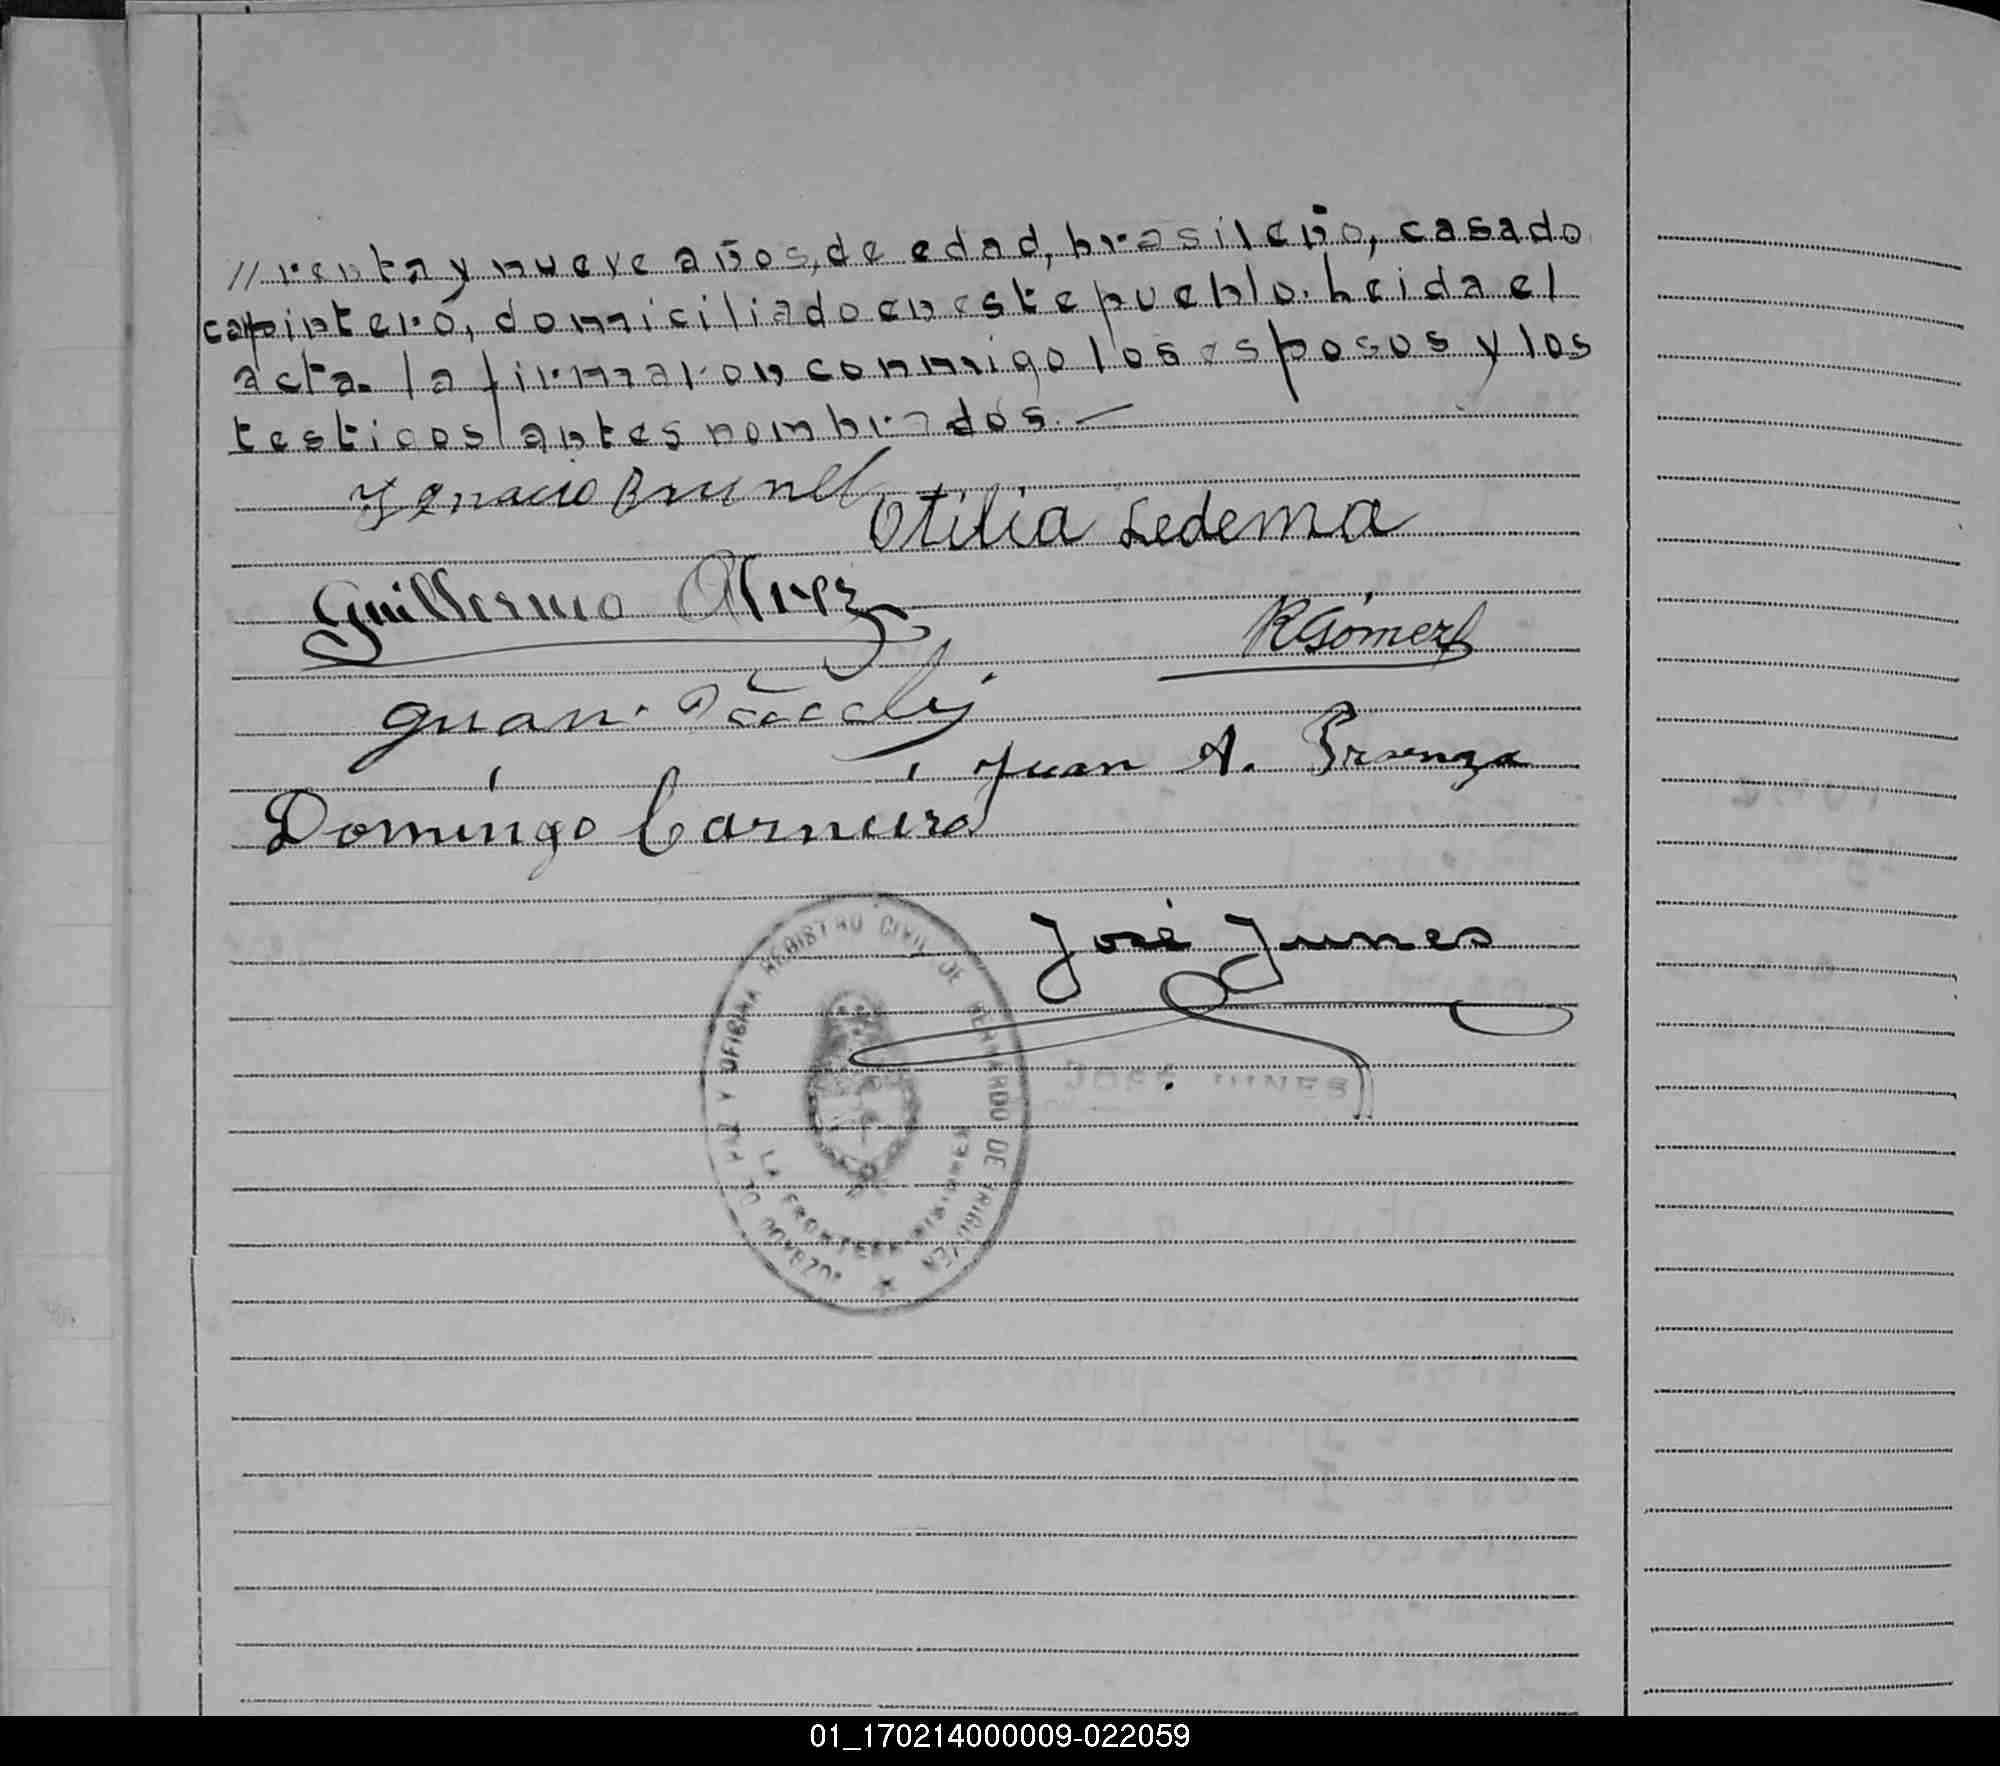 //renta y nueve años, de edad, brasileño, casado
capintero, domiciliado en este pueblo. Leida el
acta. la firmaron conmigo los esposos y los
testigos antes nombrados. —
Ygnacio Brunel
Otilia Ledema
Guillermo Alvez
R Gómez
Juan.
Juan A. Proenza
Domingo Carneiro
José Junes
JUZGADO DE PAZ Y OFICINA REGISTRO CIVIL DE BERNARDO DE IRIGOYEN
LA FRONTERA-MISIONES
JOSE JUNES
01_170214000009-022059